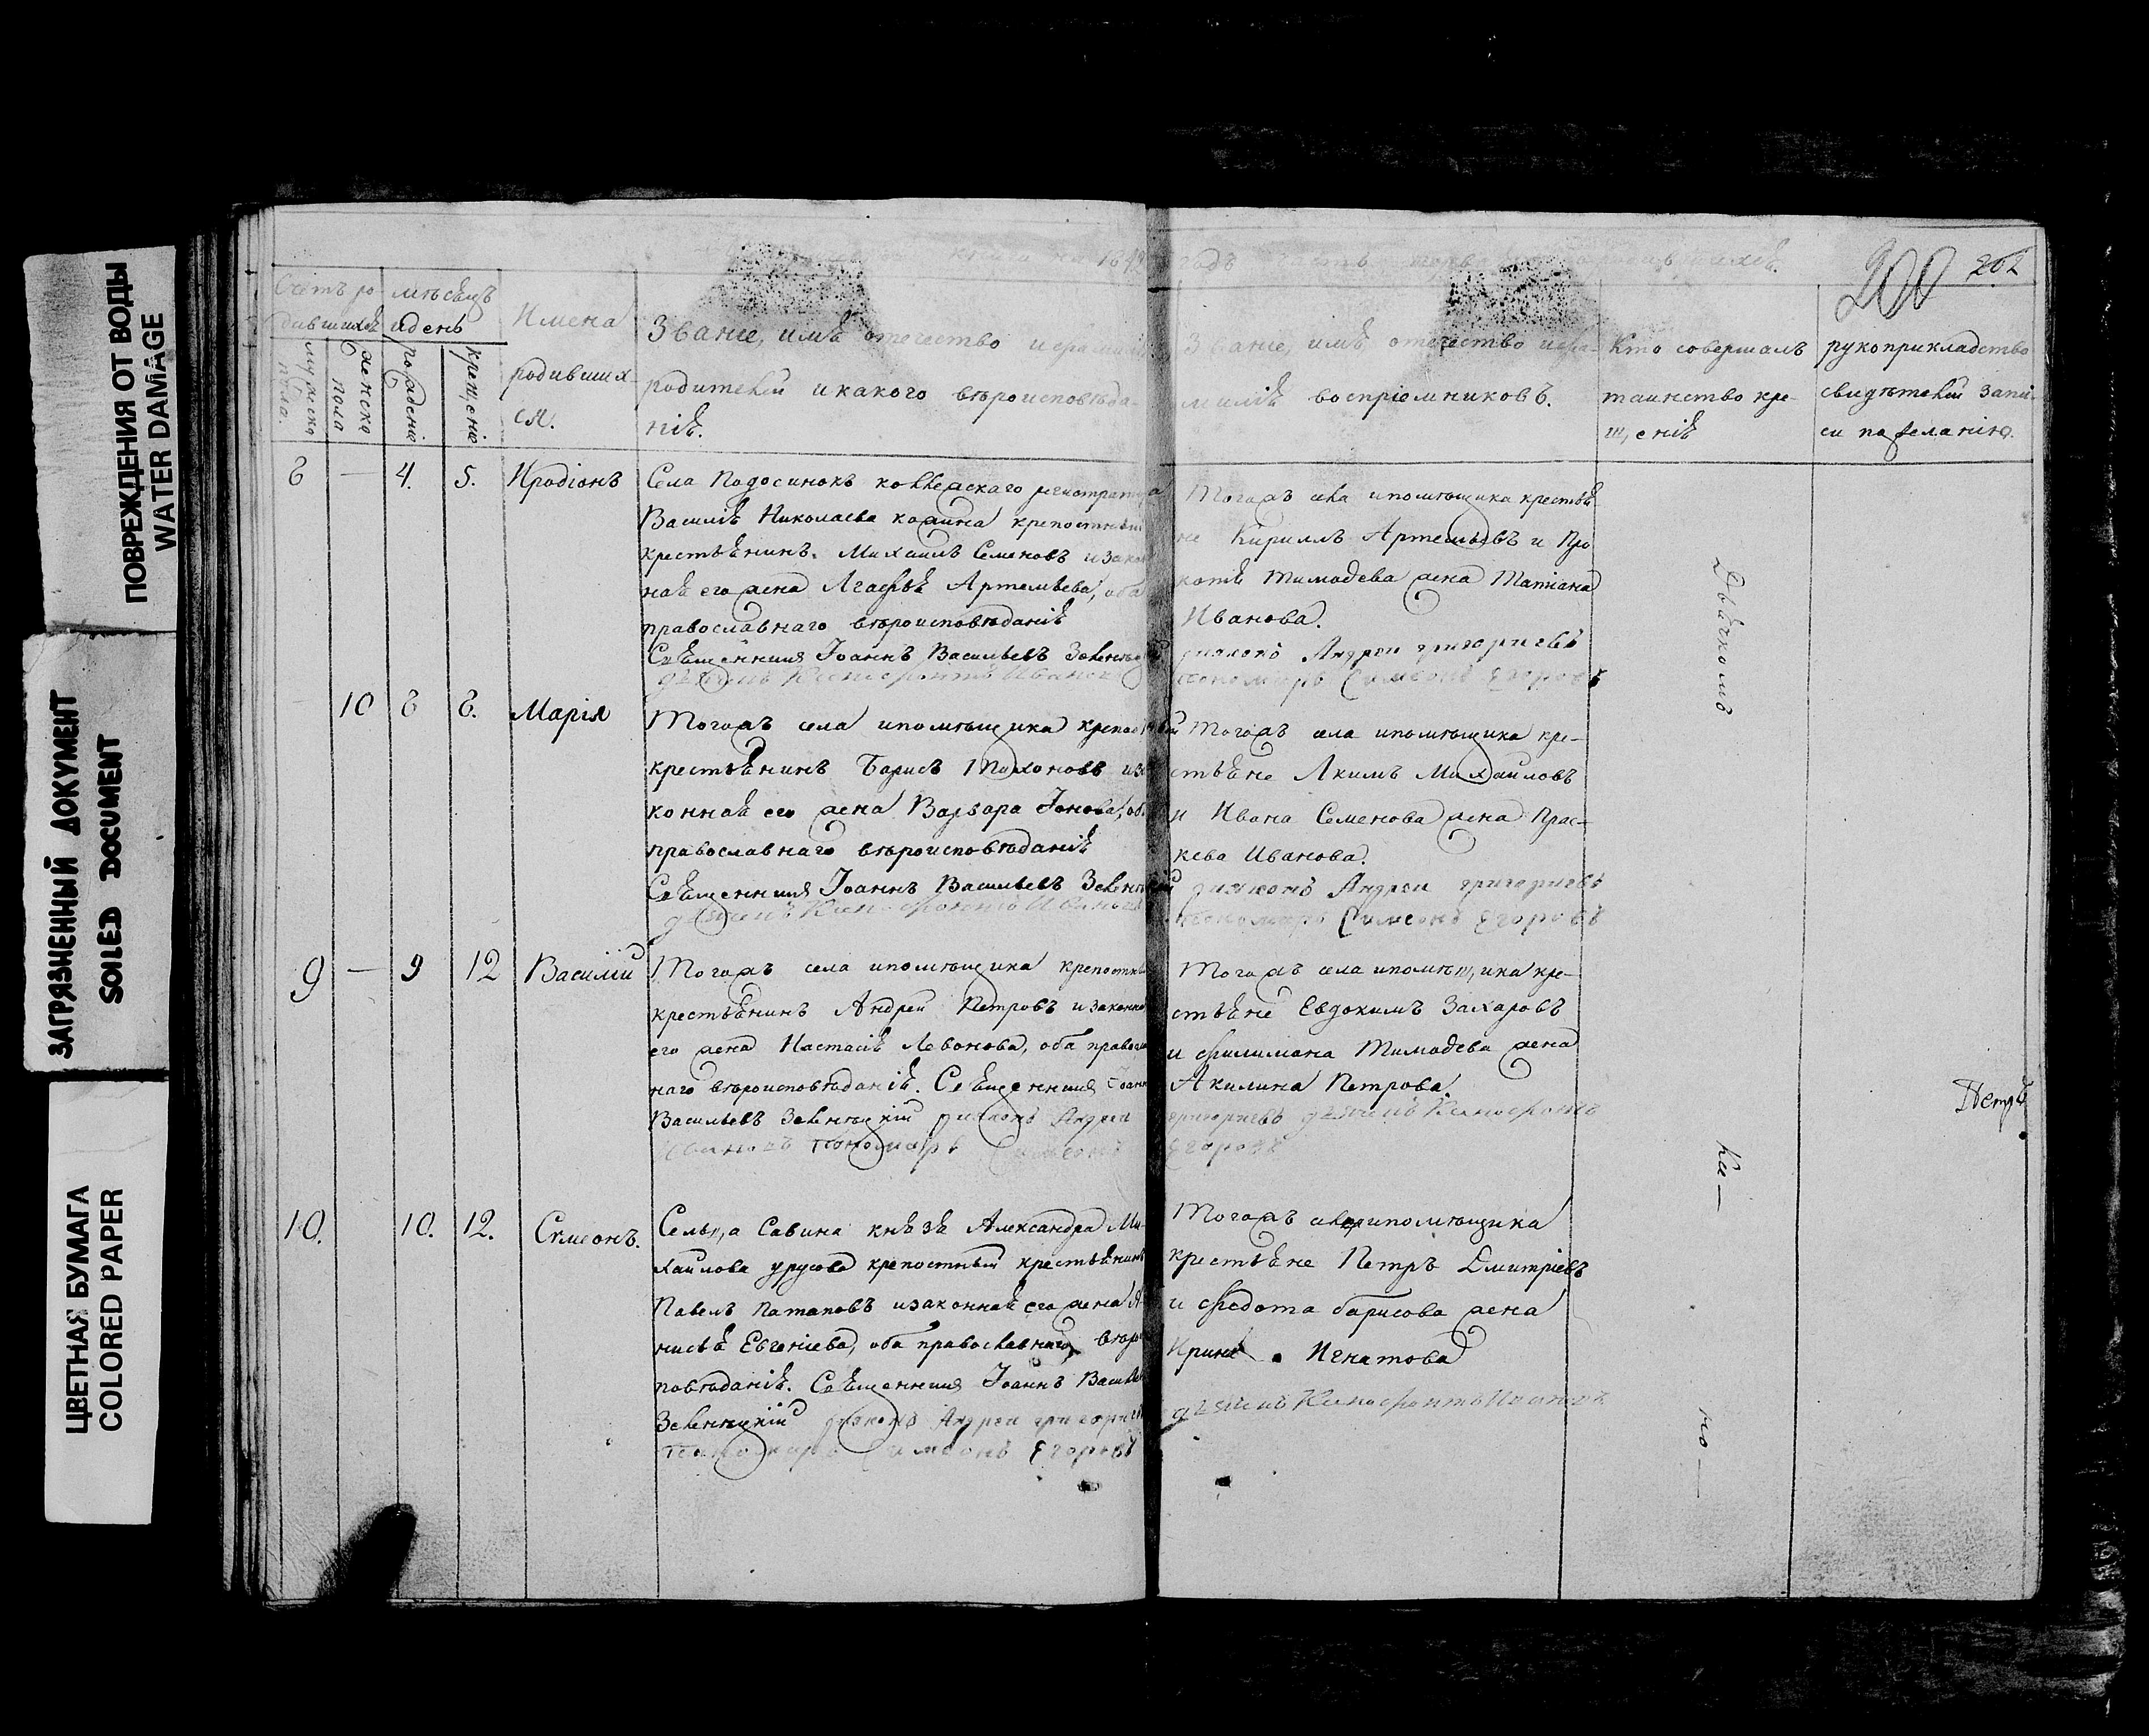 ПОВРЕЖДЕНИЯ ОТ ВОДЫ
WATER DAMAGE
ЗАГРЯЗНЕННЫЙ ДОКУМЕНТ
SOILED DOCUMENT
ЦВЕТНАЯ БУМАГА
COLORED PAPER
книги на
200 202
Счетъ ро-
дившихся
мѣсяцъ
и день
мужеска
пола.
женска
пола
рожденіе
крещеніе
Имена
родивших-
ся.
Званіе, имя отечество и фамилія
родителей и какого вѣроисповѣда-
нія.
Званіе, имя отечество и фа-
милія воспріемниковъ.
Кто совершалъ
таинство кре-
щенія
рукоприкладство
свидѣтелей запи-
си по желанію.
8 — 4. 5. Иродіонъ
Села Подосинокъ коллежскаго регистратора
Василія Николаева крепостный
крестьянинъ Михаилъ Семеновъ и закон
ная его жена Агафья Артемьева, оба
православнаго вѣроисповѣданія
Священникъ Іоаннъ Васильевъ
Тогожъ села и помѣщика крестья
не Кириллъ Артемьевъ и Про
кофія Тимофеева жена Татіана
Иванова.
диаконъ Андреи григориевъ
пономарь Симеонъ Егоровъ
10 8 8. Марія
Тогожъ села и помѣщика крепостный
крестьянинъ Борисъ Тихоновъ и за
конная его жена Варвара Іонова, оба
православнаго вѣроисповѣданія
Священникъ Іоаннъ Васильевъ
Тогожъ села и помѣщика кре-
стьяне Акимъ Михаиловъ
и Ивана Семенова жена Прас-
кева Иванова.
диаконъ Андреи григориевъ
пономарь Симеонъ Егоровъ
9 — 9 12 Василій
Тогожъ села и помѣщика крепостный
крестьянинъ Андрей Петровъ и законная
его жена Настасія Левонова, оба православ
наго вѣроисповѣданія. Священникъ Іоаннъ
Васильевъ диаконъ Андреи
пономарь Симеонъ
Тогожъ села и помѣщика кре-
стьяне Евдокимъ Захаровъ
и Филимона Тимофеева жена
Акилина Петрова
григориевъ
Егоровъ
10. 10. 12. Симеонъ.
Сельца Савина князя Александра Ми-
хаилова урусова крепостный крестьянинъ
Павелъ Патаповъ и законная его жена А
нисья Евгеніева, оба православнаго вѣроис
повѣданія. Священникъ Іоаннъ Васильевъ
диаконъ Андреи григориевъ
пономарь Симеонъ Егоровъ
Тогожъ и помѣщика
крестьяне Петръ Дмитріевъ
и Федота борисова жена
Ирина Игнатова